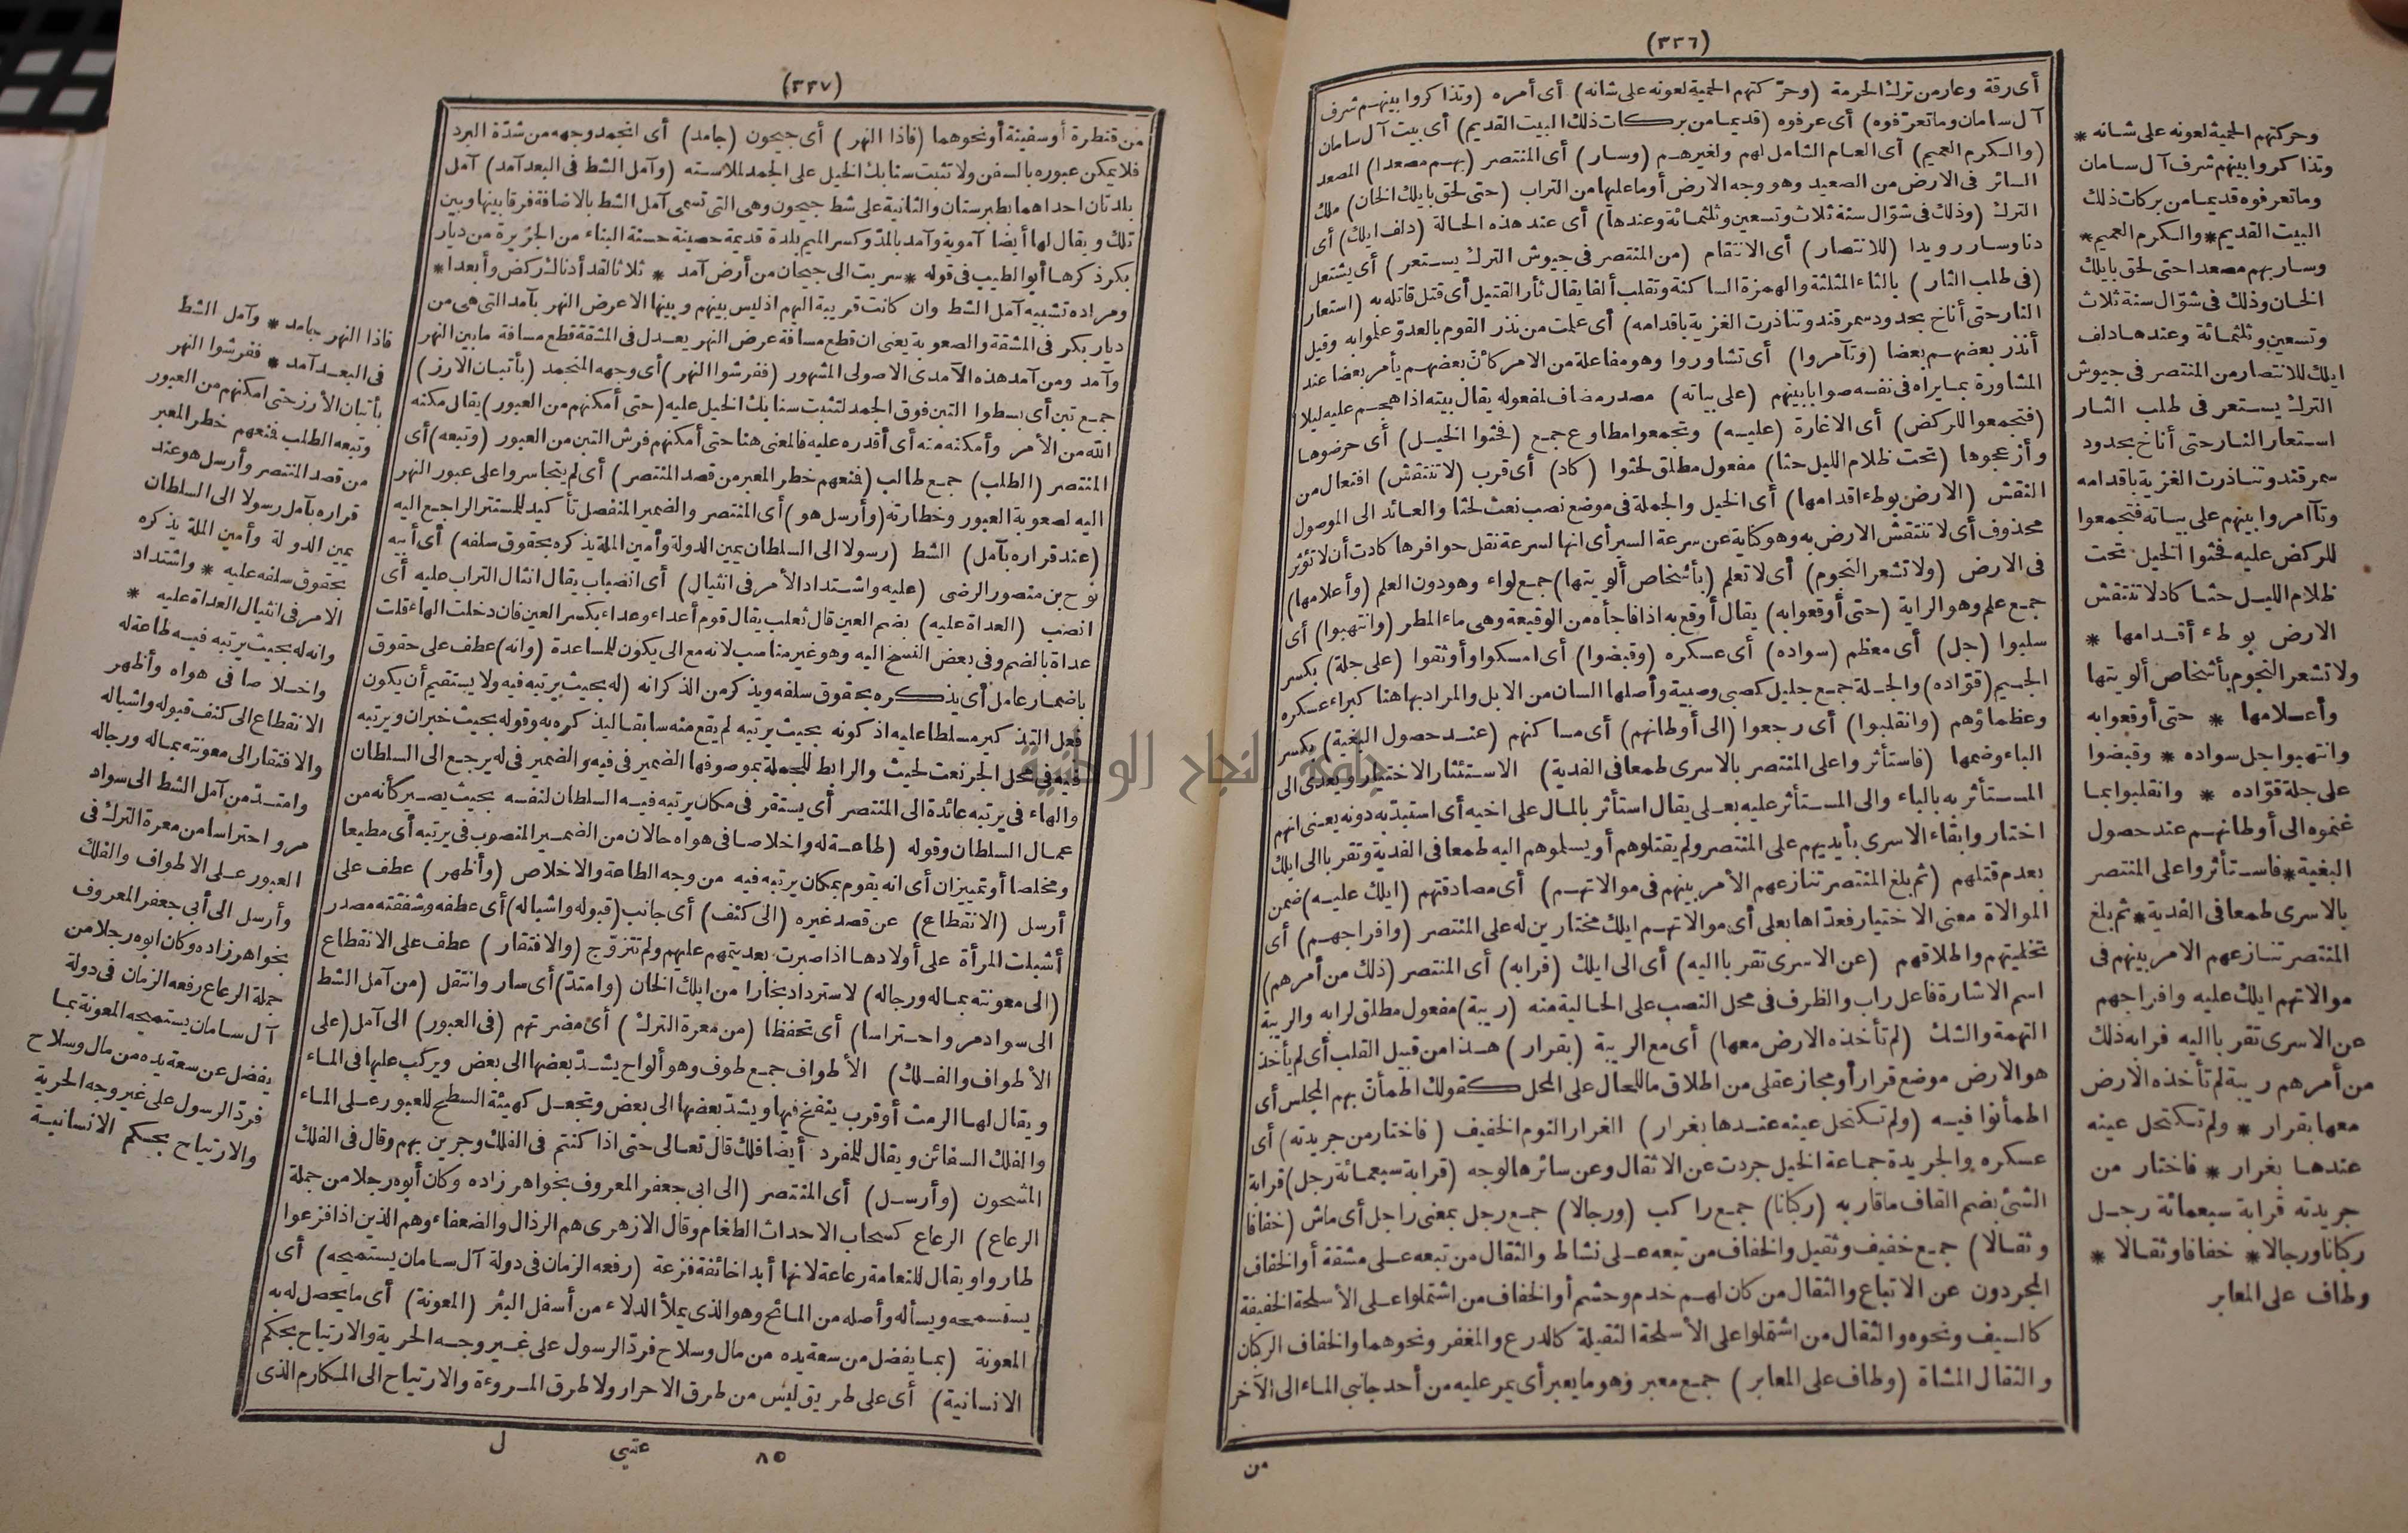 (٣٣٦)
أى رقة وعار من ترك الحرمة (وحرّكتهم الحمية لعونه على شانه) أى أمره (وتذاكروا بينهم شرف
آل سامان وما تعرّفوه) أى عرفوه (قديما من بركات ذلك البيت القديم) أى بيت آل سامان
(والكرم العميم) أى العام الشامل لهم ولغيرهم (وسار) أى المنتصر (بهم مصعدا) المصعد
السائر فى الارض من الصعيد وهو وجه الارض أو ما عليها من التراب (حتى لحق بايلك الخان) ملك
الترك (وذلك فى شوّال سنة ثلاث وتسعين وثلثمائة وعندها) أى عند هذه الحالة (دلف ايلك) أى
دنا وسار رويدا (للانتصار) أى الانتقام (من المنتصر فى جيوش الترك يستعر) أى يشتعل
(فى طلب الثار) بالثاء المثلثة والهمزة الساكنة وتقلب ألفا يقال ثأر القتيل أى قتل قاتله به (استعار
النار حتى أناخ بحدود سمرقند وتناذرت الغزية باقدامه) أى علمت من نذر القوم بالعدوّ علموا به وقيل
أنذر بعضهم بعضا (وتآمروا) أى تشاوروا وهو مفاعلة من الامر كأنّ بعضهم يأمر بعضا عند
المشاورة بما يراه فى نفسه صوابا بينهم (على بياته) مصدر مضاف لمفعوله يقال بيته اذا هجم عليه ليلا
(فتجمعوا للركض) أى الاغارة (عليه) وتجمعوا مطاوع جمع (فحثوا الخيل) أى حرضوها
وأزعجوها (تحت ظلام الليل حثا) مفعول مطلق لحثوا (كاد) أى قرب (لا تنتقش) افتعال من
النقش (الارض بوطء اقدامها) أى الخيل والجملة فى موضع نصب نعت لحثا والعائد الى الموصول
محذوف أى لا تنتقش الارض به وهو كناية عن سرعة السير أى انها لسرعة نقل حوافرها كادت أن لا تؤثر
فى الارض (ولا تشعر النجوم) أى لا تعلم (بأشخاص ألويتها) جمع لواء وهو دون العلم (وأعلامها)
جمع علم وهو الراية (حتى أوقعوا به) يقال أوقع به اذا فاجأه من الوقيعة وهى ماء المطر (وانتهبوا) أى
سلبوا (جل) أى معظم (سواده) أى عسكره (وقبضوا) أى امسكوا وأوثقوا (على جلة) بكسر
الجيم (قوّاده) والجلة جمع جليل كصبى وصبية وأصلها السان من الابل والمراد بها هنا كبراء عسكره
وعظماؤهم (وانقلبوا) أى رجعوا (الى أوطانهم) أى مساكنهم (عند حصول البغية) بكسر
الباء وضمها (فاستأثروا على المنتصر بالاسرى طمعا فى الفدية) الاستئثار الاختيار ويعدى الى
المستأثر به بالباء والى المستأثر عليه بعلى يقال استأثر بالمال على اخيه أى استبدّ به دونه يعنى انهم
اختاروا ابقاء الاسرى بأيديهم على المنتصر ولم يقتلوهم أو يسلموهم اليه طمعا فى الفدية وتقربا الى ايلك
بعدم قتلهم (ثم بلغ المنتصر تنازعهم الأمر بينهم فى موالاتهم) أى مصادقتهم (ايلك عليه) ضمن
الموالاة معنى الاختيار فعدّاها بعلى أى موالاتهم ايلك مختارين له على المنتصر (وافراجهم) أى
تخليتهم واطلاقهم (عن الاسرى تقربا اليه) أى الى ايلك (فرابه) أى المنتصر (ذلك من أمرهم)
اسم الاشارة فاعل راب والظرف فى محل النصب على الحالية منه (ريبة) مفعول مطلق لرابه والريبة
التهمة والشك (لم تأخذه الارض معها) أى مع الريبة (بقرار) هذا من قبيل القلب أى لم يأخذ
هو الارض موضع قرار أو مجاز عقلى من اطلاق ما للحال على المحل كقولك اطمأنّ بهم المجلس أى
اطمأنوا فيه (ولم تكتحل عينه عندها بغرار) الغرار النوم الخفيف (فاختار من جريدته) أى
عسكره والجريدة جماعة الخيل جردت عن الاثقال وعن سائرها لوجه (قرابة سبعمائة رجل) قرابة
الشئ بضم القاف ما قاربه (ركبانا) جمع راكب (ورجالا) جمع رجل بمعنى راجل أى ماش (خفافا
وثقالا) جمع خفيف وثقيل والخفاف من تبعه على نشاط والثقال من تبعه على مشقة أو الخفاف
المجردون عن الاتباع والثقال من كان لهم خدم وحشم أو الخفاف من اشتملوا على الأسلحة الخفيفة
كالسيف ونحوه والثقال من اشتملوا على الأسلحة الثقيلة كالدرع والمغفر ونحوهما والخفاف الركبان
والثقال المشاة (وطاف على المعابر) جمع معبر وهو ما يعبر أى يمر عليه من أحد جانبى الماء الى الآخر
من
وحركتهم الحمية لعونه على شانه *
وتذاكروا بينهم شرف آل سامان
وما تعرفوه قديما من بركات ذلك
البيت القديم * والكرم العميم *
وسار بهم مصعدا حتى لحق بايلك
الخان وذلك فى شوّال سنة ثلاث
وتسعين وثلثمائة وعندها دلف
ايلك للانتصار من المنتصر فى جيوش
الترك يستعر فى طلب الثار
استعار النار حتى أناخ بحدود
سمرقند وتناذرت الغزية باقدامه
وتآمروا بينهم على بياته فتجمعوا
للركض عليه فحثوا الخيل تحت
ظلام الليل حثا كاد لا تنتقش
الارض بوطء أقدامها *
ولا تشعر النجوم بأشخاص ألويتها
وأعلامها * حتى أوقعوا به
وانتهبوا جل سواده * وقبضوا
على جلة قوّاده * وانقلبوا بما
غنموه الى أوطانهم عند حصول
البغية * فاستأثروا على المنتصر
بالاسرى طمعا فى الفدية * ثم بلغ
المنتصر تنازعهم الامر بينهم فى
موالاتهم ايلك عليه وافراجهم
عن الاسرى تقربا اليه فرابه ذلك
من أمرهم ريبة لم تأخذه الارض
معها بقرار * ولم تكتحل عينه
عندها بغرار * فاختار من
جريدته قرابة سبعمائة رجل
ركبانا ورجالا * خفافا وثقالا *
وطاف على المعابر
(٣٣٧)
من قنطرة أو سفينة أو نحوهما (فاذا النهر) أى جيحون (جامد) أى انجمد وجهه من شدّة البرد
فلا يمكن عبوره بالسفن ولا تثبت سنابك الخيل على الجمد لملاسته (وآمل الشط فى البعد آمد) آمل
بلدتان احداهما بطبرستان والثانية على شط جيحون وهى التى تسمى آمل الشط بالاضافة فرقا بينها وبين
تلك ويقال لها أيضا آموية وآمد بالمدّ وكسر الميم بلدة قديمة حصينة حسنة البناء من الجزيرة من ديار
بكر ذكرها أبو الطيب فى قوله * سريت الى جيحان من أرض آمد * ثلاثا لقد أدناك ركض وأبعدا *
ومراده تشبيه آمل الشط وان كانت قريبة اليهم اذ ليس بينهم وبينها الا عرض النهر بآمد التى هى من
ديار بكر فى المشقة والصعوبة يعنى ان قطع مسافة عرض النهر يعدل فى المشقة قطع مسافة ما بين النهر
وآمد ومن آمد هذه الآمدى الاصولى المشهور (ففرشوا النهر) أى وجهه المنجمد (بأتبان الارز)
جمع تبن أى بسطوا التبن فوق الجمد لتثبت سنابك الخيل عليه (حتى أمكنهم من العبور) يقال مكنه
الله من الأمر وأمكنه منه أى أقدره عليه فالمعنى هنا حتى أمكنهم فرش التبن من العبور (وتبعه) أى
المنتصر (الطلب) جمع طالب (فمنعهم خطر المعبر من قصد المنتصر) أى لم يتجاسروا على عبور النهر
اليه لصعوبة العبور وخطارته (وأرسل هو) أى المنتصر والضمير المنفصل تأكيد للمستتر الراجع اليه
(عند قراره بآمل) الشط (رسولا الى السلطان يمين الدولة وأمين الملة يذكره بحقوق سلفه) أى أبيه
نوح بن منصور الرضى (عليه واشتداد الأمر فى انثيال) أى انصباب يقال انثال التراب عليه أى
انصب (العداة عليه) بضم العين قال ثعلب يقال قوم أعداء وعداء بكسر العين فان دخلت الهاء قلت
عداة بالضم وفى بعض النسخ اليه وهو غير مناسب لانه مع الى يكون للمساعدة (وانه) عطف على حقوق
باضمار عامل أى يذكره بحقوق سلفه ويذكر من الذكر انه (له بحيث يرتبه فيه ولا يستقيم أن يكون
فعل التذكير مسلطا عليه اذ كونه بحيث يرتبه لم يقع منه سابقا ليذكره به وقوله بحيث خبر ان ويرتبه
فيه فى محل الجر نعت لحيث والرابط للجملة بموصوفها الضمير فى فيه والضمير فى له يرجع الى السلطان
والهاء فى يرتبه عائدة الى المنتصر أى يستقر فى مكان يرتبه فيه السلطان لنفسه بحيث يصير كأنه من
عمال السلطان وقوله (طاعة له واخلاصا فى هواه حالان من الضمير المنصوب فى يرتبه أى مطيعا
ومخلصا أو تمييزان أى انه يقوم بمكان يرتبه فيه من وجه الطاعة والاخلاص (وأظهر) عطف على
أرسل (الانقطاع) عن قصد غيره (الى كنف) أى جانب (قبوله واشباله) أى عطفه وشفقته مصدر
أشبلت المرأة على أولادها اذا صبرت بعد يتمهم عليهم ولم تتزوّج (والافتقار) عطف على الانقطاع
(الى معونته بماله ورجاله) لاسترداد بخارا من ايلك الخان (وامتدّ) أى سار وانتقل (من آمل الشط
الى سواد مرو احتراسا) أى تحفظا (من معرة الترك) أى مضرتهم (فى العبور) الى آمل (على
الأطواف والفلك) الأطواف جمع طوف وهو ألواح يشدّ بعضها الى بعض ويركب عليها فى الماء
ويقال لها الرمث أو قرب ينفخ فيها ويشدّ بعضها الى بعض وتجعل كهيئة السطح للعبور على الماء
والفلك السفائن ويقال للمفرد أيضا فلك قال تعالى حتى اذا كنتم فى الفلك وجرين بهم وقال فى الفلك
المشحون (وأرسل) أى المنتصر (الى ابى جعفر المعروف بخواهر زاده وكان أبوه رجلا من جملة
الرعاع) الرعاع كسحاب الاحداث الطغام وقال الازهرى هم الرذال والضعفاء وهم الذين اذا فزعوا
طاروا ويقال للنعامة رعاعة لانها أبدا خائفة فزعة (رفعه الزمان فى دولة آل سامان يستميحه) أى
يستسمحه ويسأله وأصله من المائح وهو الذى يملأ الدلاء من أسفل البئر (المعونة) أى ما يحصل له به
المعونة (بما يفضل من سعة يده من مال وسلاح فردّ الرسول على غير وجه الحرية والارتياح بحكم
الانسانية) أى على طريق ليس من طرق الاحرار ولا طرق المروءة والارتياح الى المكارم الذى
٨٥ عتبي ل
فاذا النهر جامد * وآمل الشط
فى البعد آمد * ففرشوا النهر
بأتبان الأرز حتى امكنهم من العبور
وتبعه الطلب فمنعهم خطر المعبر
من قصد المنتصر وأرسل هو عند
قراره بآمل رسولا الى السلطان
يمين الدولة وأمين الملة يذكره
بحقوق سلفه عليه * واشتداد
الامر فى انثيال العداة عليه *
وانه له بحيث يرتبه فيه طاعة له
واخلاصا فى هواه وأظهر
الانقطاع الى كنف قبوله واشباله
والافتقار الى معونته بماله ورجاله
وامتدّ من آمل الشط الى سواد
مرو احتراسا من معرة الترك فى
العبور على الاطواف والفلك
وأرسل الى أبى جعفر المعروف
بخواهر زاده وكان ابوه رجلا من
جملة الرعاع رفعه الزمان فى دولة
آل سامان يستميحه المعونة بما
يفضل عن سعة يده من مال وسلاح
فردّ الرسول على غير وجه الحرية
والارتياح بحكم الانسانية
جامعة النجاح الوطنية